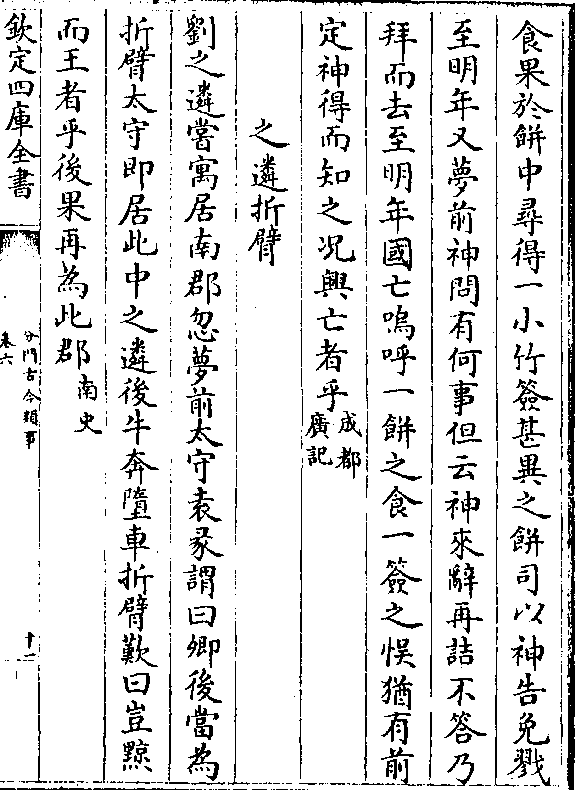 食果於餅中尋得一小竹簽甚異之餅司以神告免戮
至明年又夢前神問有何事但云神來辭再詰不答乃
拜而去至明年國亡嗚呼一餅之食一簽之悮猶有前
定神得而知之况興亡者乎成都
廣記
之遴折臂
劉之遴嘗寓居南郡忽夢前太守袁彖謂曰卿後當為
折臂太守即居此中之遴後牛奔墮車折臂歎曰豈黥
而王者乎後果再為此郡南史
欽定四庫全書
分門古今類事
卷六
十二